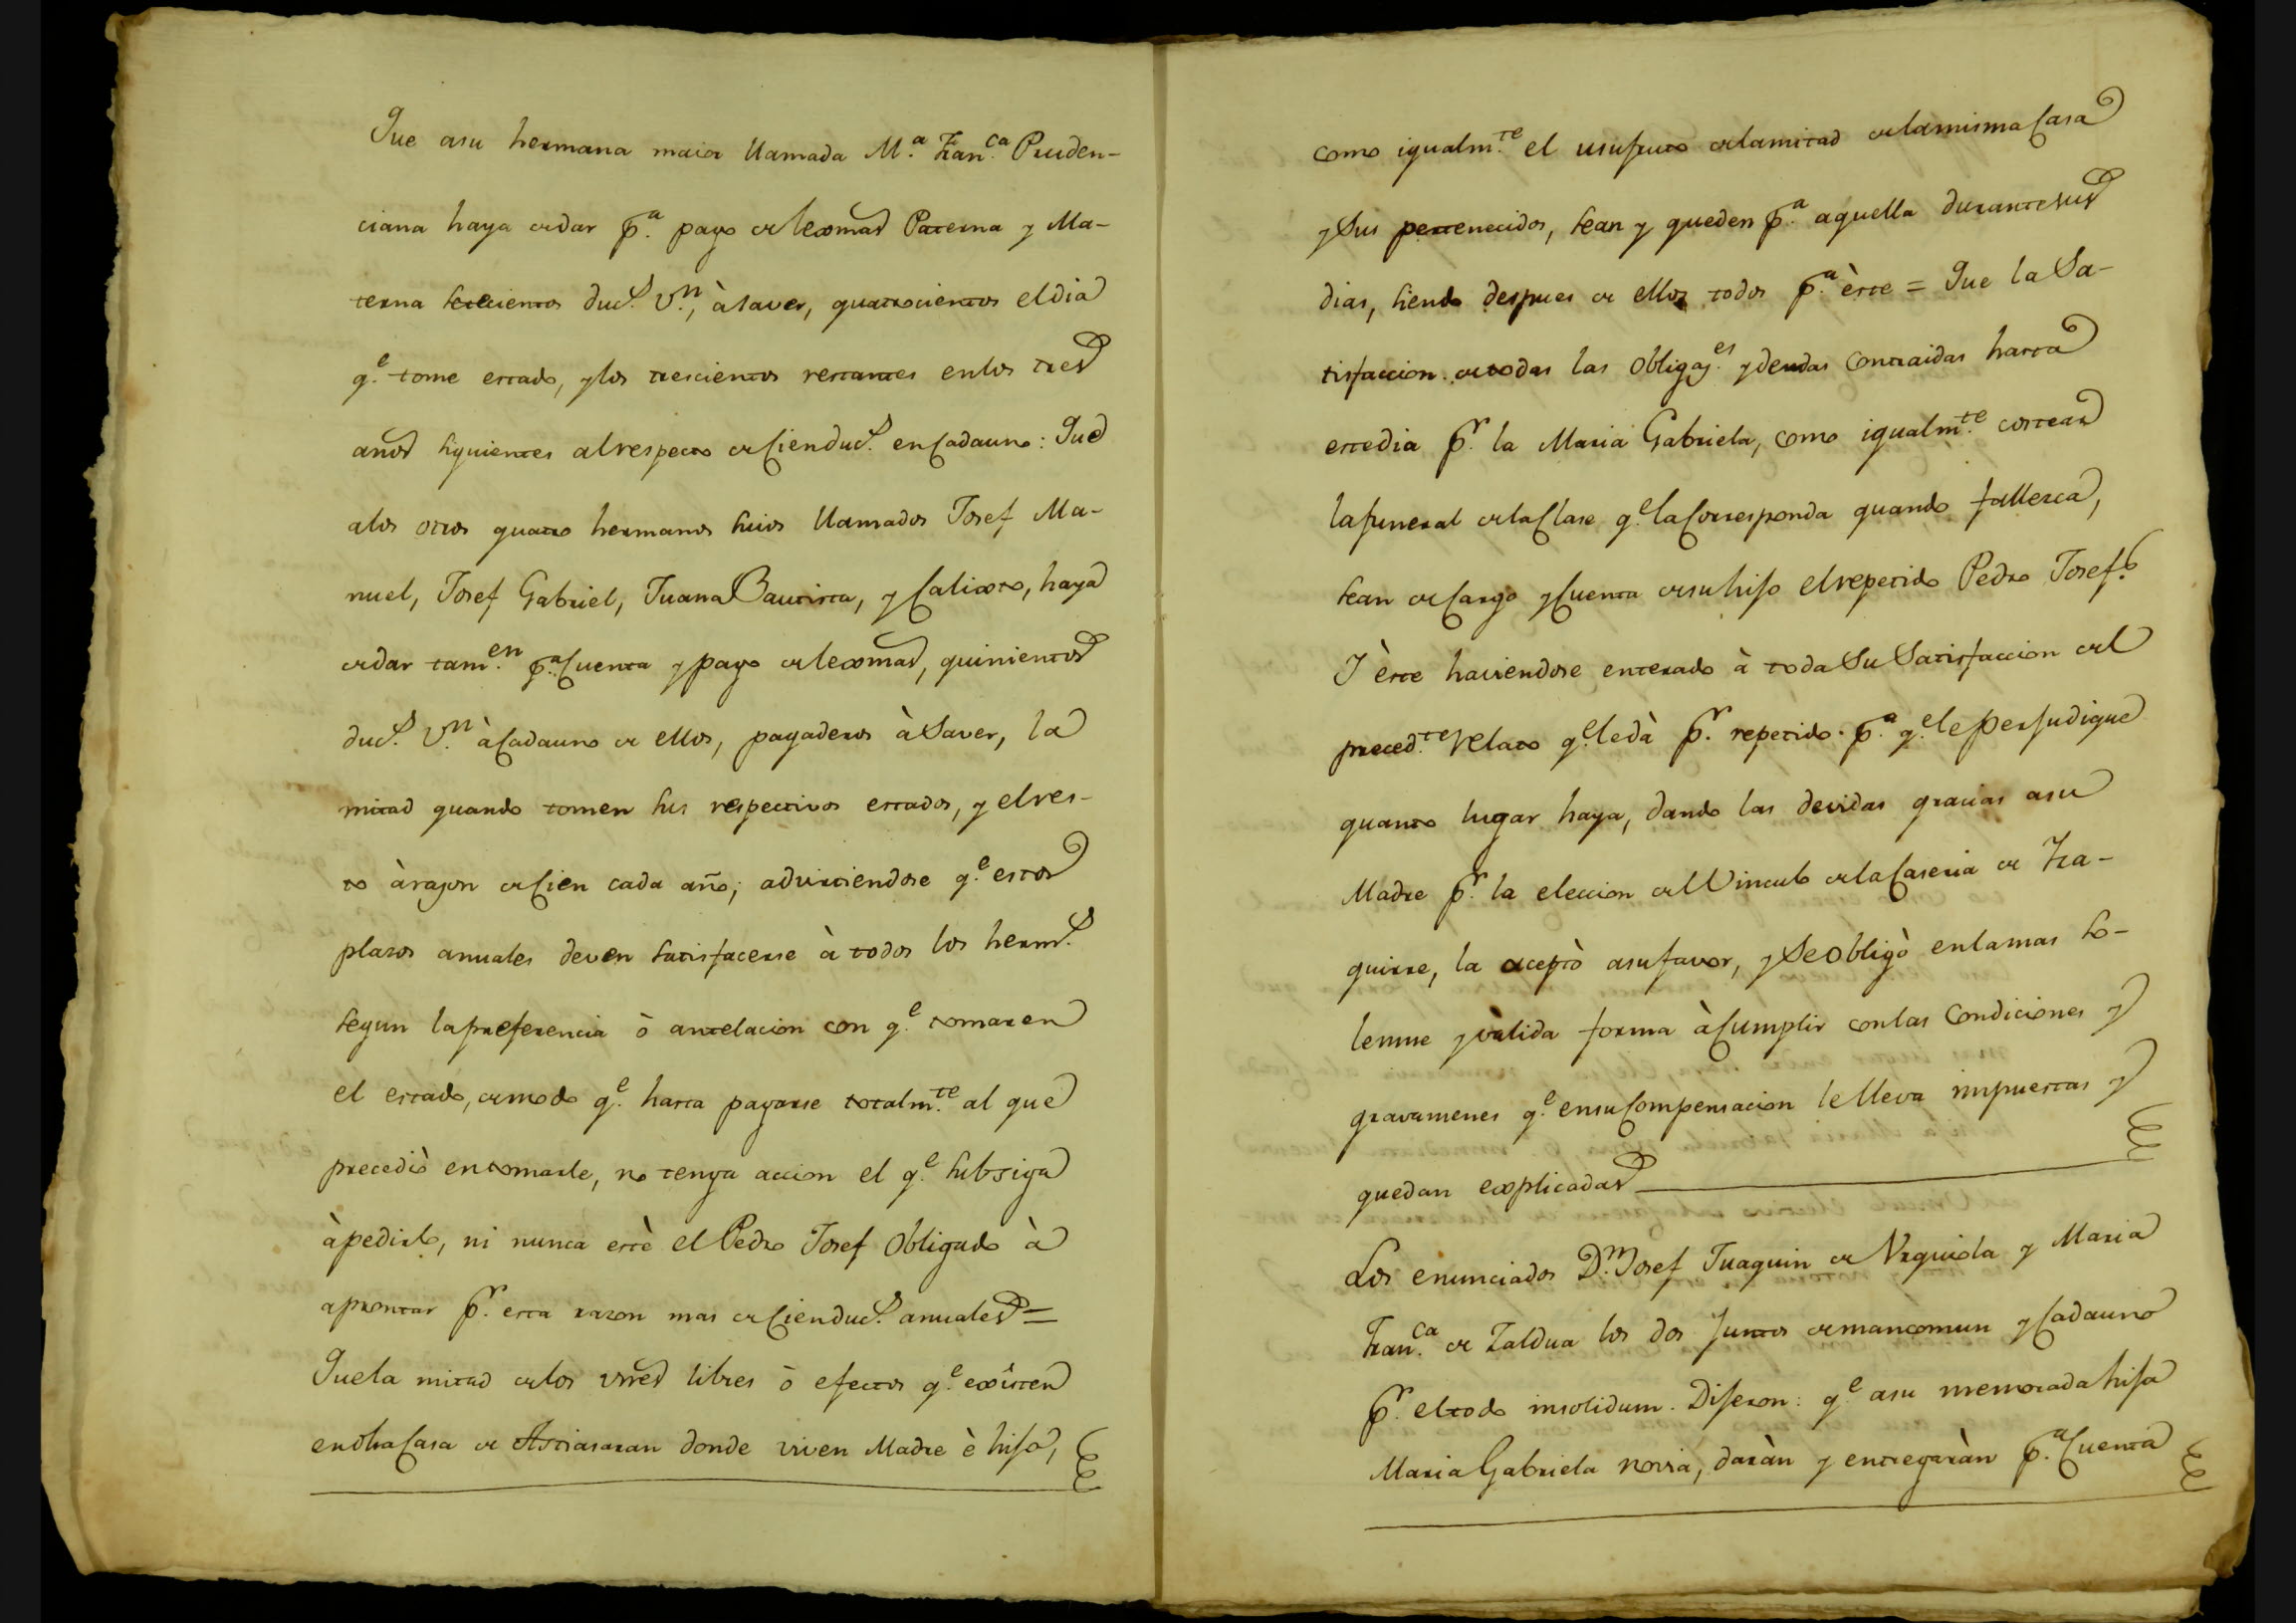 Que asu hermana maior llamada M.ª Fran.ca Pruden-
ciana haya de dar p.ª pago de lexmas Paterna y Ma-
terna setecientos duc.s v.n, à saver, quatrocientos el dia
q.e tome estado, y los trescientos restantes en los tres
años siguientes al respecto de Cien duc.s en Cada uno: Que
a los otros quatro hermanos suios llamados Josef Ma-
nuel, Josef Gabriel, Juana Bautista, y Calixto, haya
de dar tam.en p.ª Cuenta y pago de lexmas, quinientos
duc.s v.n à Cada uno de ellos, pagaderos à Saver, la
mitad quando tomen sus respectivos estados, y el res-
to à razon de Cien cada año; advirtiendose q.e estos
plazos anuales deven satisfacerse à todos los herm.s
segun la preferencia ò antelacion con q.e tomaren
el estado, de modo q.e hasta pagarse totalm.te al que
precediò en tomarle, no tenga accion el q.e subsiga
à pedirlo, ni nunca estè el Pedro Josef Obligado à
aprontar p.r esta razon mas de Cien duc.s anuales =
Que la mitad de los vnes libres ò efectos q.e existen
en dha Casa de Astiasaran donde viven Madre è hijo,
como igualm.te el usufruto de la mitad de la misma Casa
y Sus pertenecidos, sean y queden p.ª aquella durante sus
dias, siendo despues de ellos todos p.ª èste = Que la Sa-
tisfaccion de todas las Obligag.es y deudas Contraidas hasta
este dia p.r la Maria Gabriela, como igualm.te costear
la funeral de la Clase q.e la Corresponda quando fallezca,
sean de Cargo y Cuenta de su hijo el repetido Pedro Josef.
Y èste haviendose enterado à toda Su Satisfaccion del
preced.te relato q.e le dà p.r repetido p.ª q.e le perjudique
quanto lugar haya, dando las devidas gracias asu
Madre p.r la eleccion del Vinculo de la Caseria de Yza-
guirre, la aceptò asu favor, y Se obligò en la mas so-
lemne y vàlida forma à Cumplir con las Condiciones y
gravamenes q.e en su Compensacion le lleva impuestas y
quedan explicadas
Los enunciados D.n Josef Juaquin de Vrquiola y Maria
Fran.ca de Zaldua los dos Juntos de mancomun y Cada uno
p.r el todo insolidum. Dijeron: q.e asu memorada hija
Maria Gabriela novia, daràn y entregaràn p.ª Cuenta